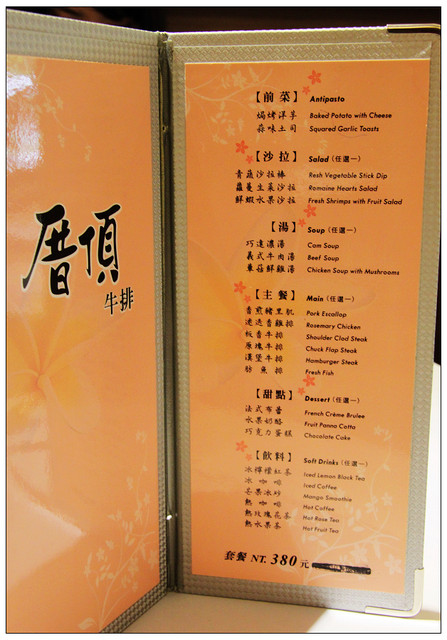 厝頂
牛排
【前菜】 Antipasto
焗烤洋芋 Baked Potato with Cheese
蒜味土司 Squared Garlic Toasts
【沙拉】 Salad (任選一)
青蔬沙拉棒 Resh Vegetable Stick Dip
蘿蔓生菜沙拉 Romaine Hearts Salad
鮮蝦水果沙拉 Fresh Shrimps with Fruit Salad
【湯】 Soup (任選一)
巧達濃湯 Corn Soup
義式牛肉湯 Beef Soup
蕈菇鮮雞湯 Chicken Soup with Mushrooms
【主餐】 Main (任選一)
香煎豬里肌 Pork Escallop
迷迭香雞排 Rosemary Chicken
板香牛排 Shoulder Clod Steak
原塊牛排 Chuck Flap Steak
漢堡牛排 Hamburger Steak
魴魚排 Fresh Fish
【甜點】 Dessert (任選一)
法式布蕾 French Crème Brulee
水果奶酪 Fruit Panna Cotta
巧克力蛋糕 Chocolate Cake
【飲料】 Soft Drinks (任選一)
冰檸檬紅茶 Iced Lemon Black Tea
冰咖啡 Iced Coffee
芒果冰沙 Mango Smoothie
熱咖啡 Hot Coffee
熱玫瑰花茶 Hot Rose Tea
熱水果茶 Hot Fruit Tea
套餐 NT. 380 元